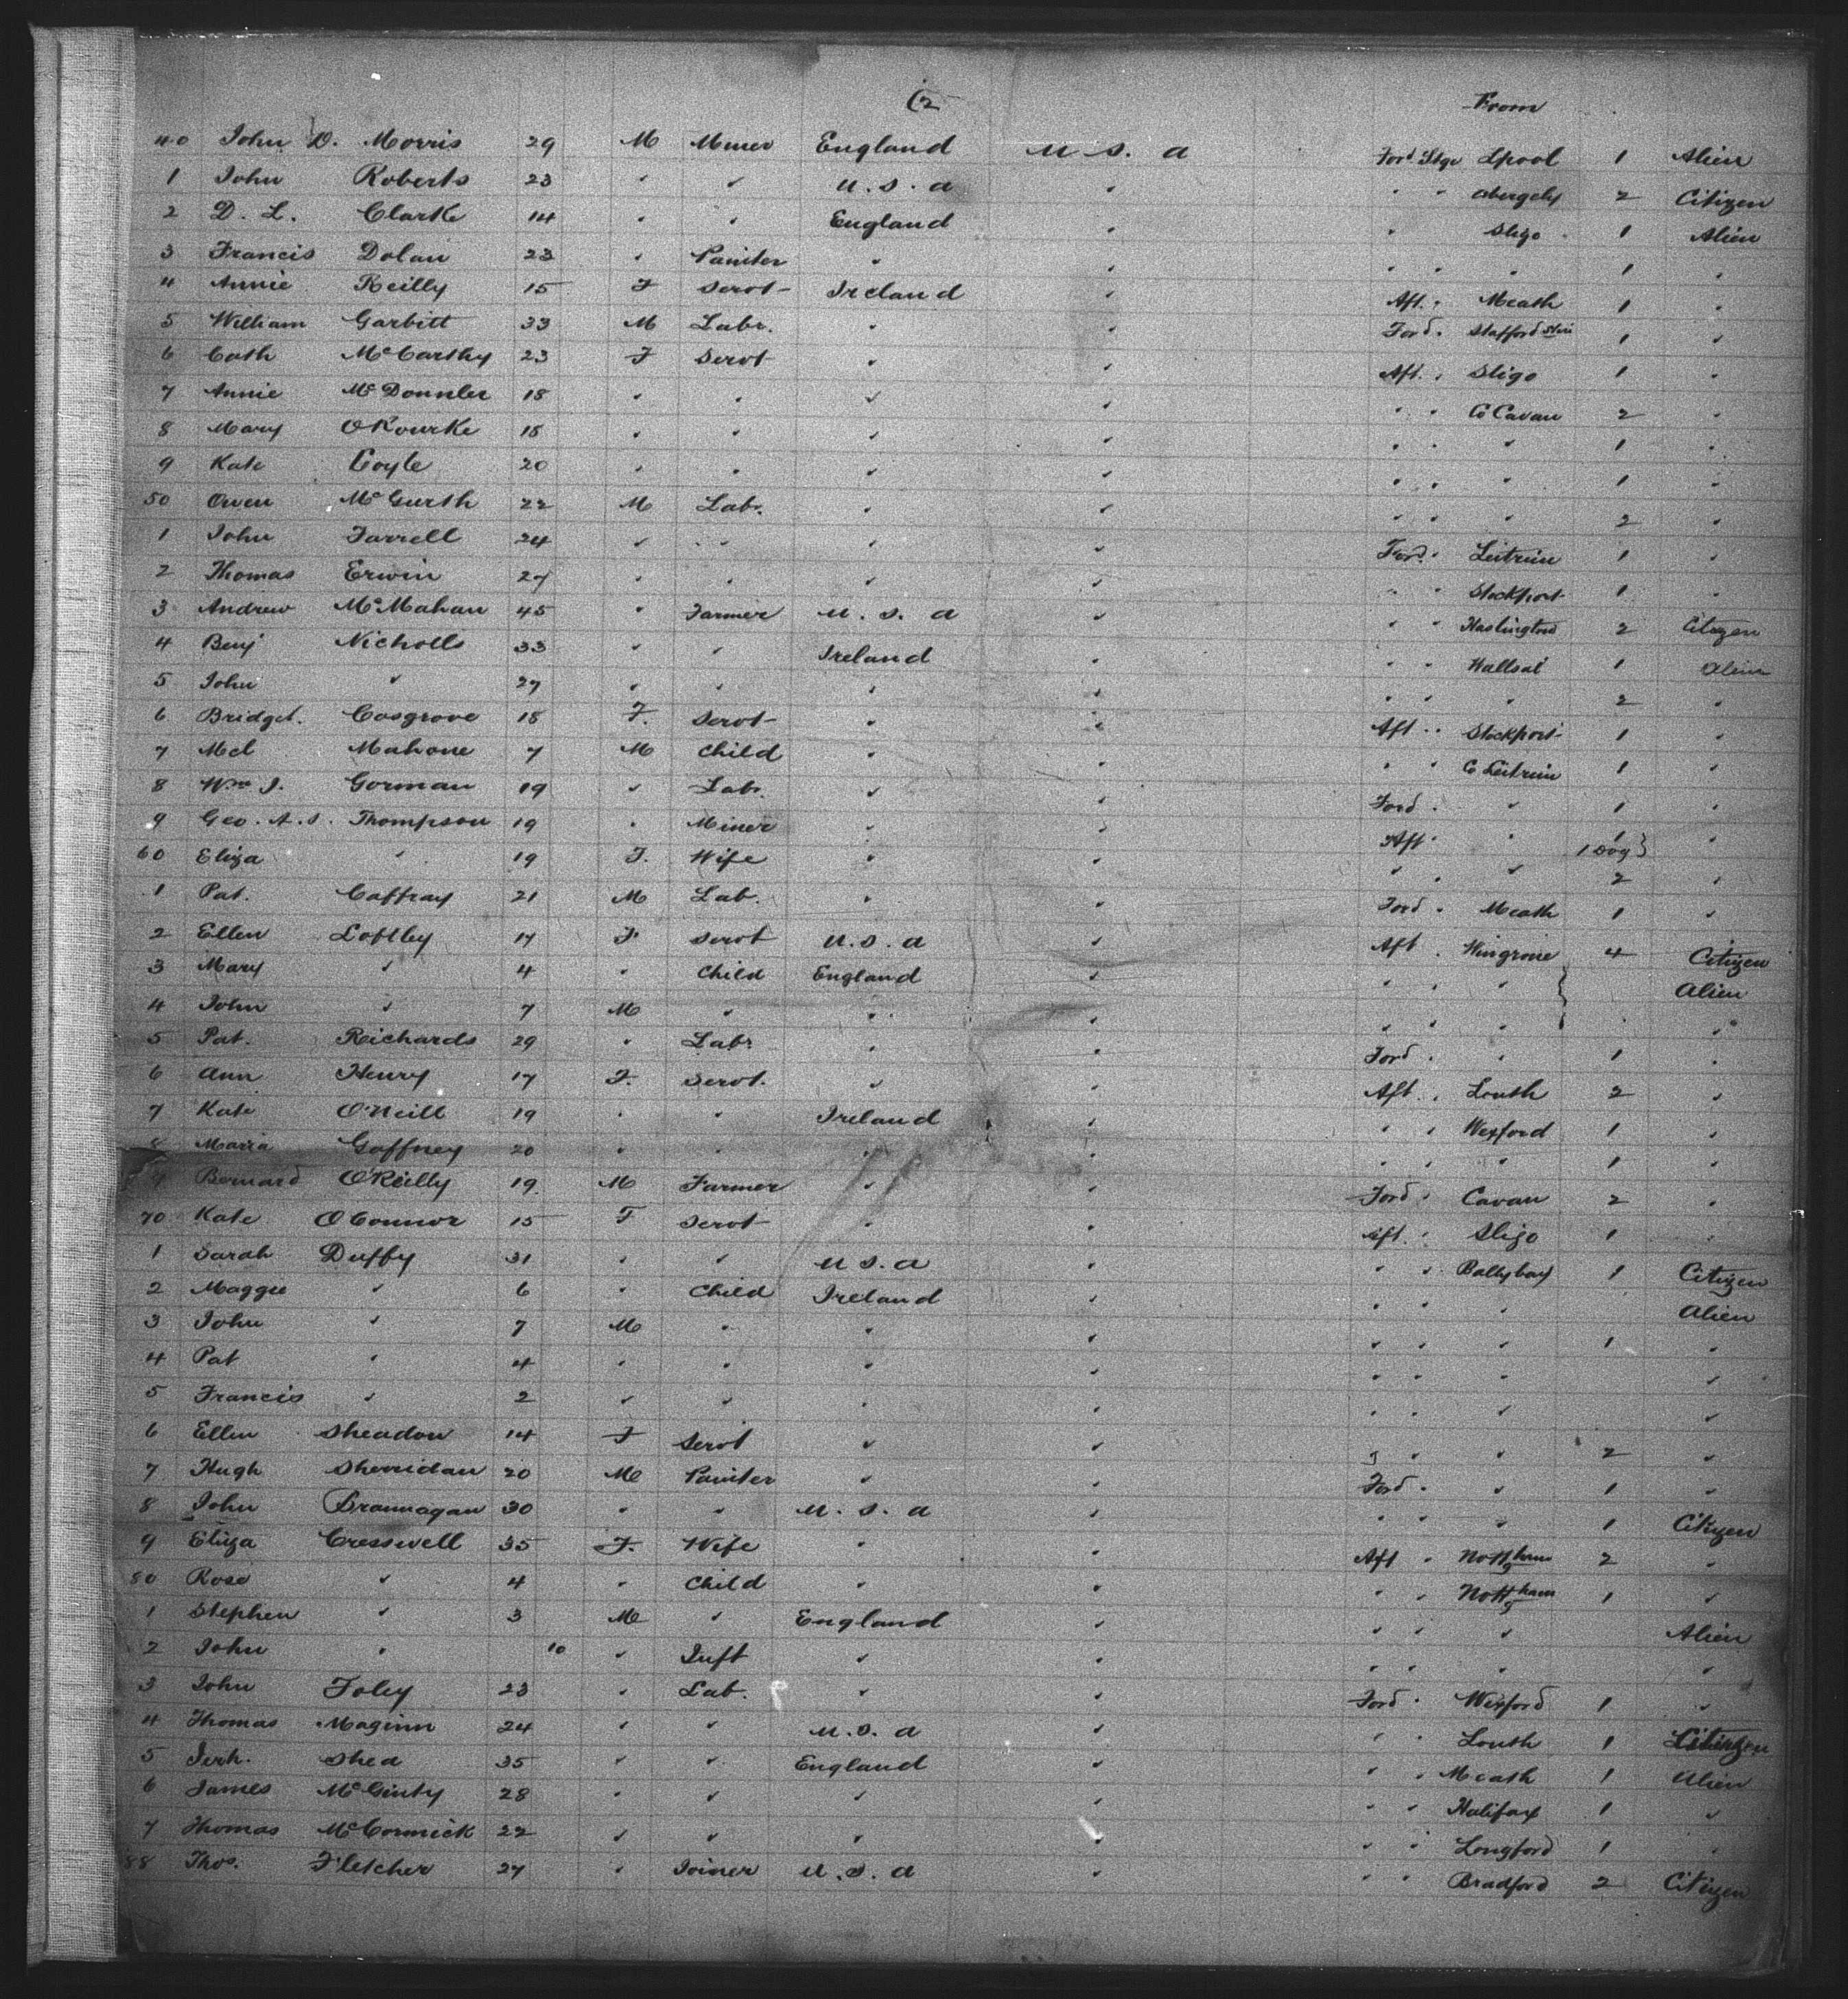 (2 From
40 John D. Morris 29 M Miner England U.S.a Ford Stge Lpool 1 Alien
1 John Roberts 23 " " U.S.a " " " Abergely 2 Citizen
2 D. L. Clarke 14 " " England " " Sligo 1 Alien
3 Francis Dolan 23 " Painter " " " " " 1 "
4 Annie Reilly 15 F Servt Ireland " Aft. " Meath 1 "
5 William Garbitt 33 M Labr. " " Ford. Stafford Shire 1 "
6 Cath McCarthy 23 F Servt " " Aft. " Sligo 1 "
7 Annie McDonnler 18 " " " " " " Co Cavan 2 "
8 Mary ORourke 18 " " " " " " " 1 "
9 Kate Coyle 20 " " " " " " " 1 "
50 Owen McGurth 22 M Labr. " " " " " 2 "
1 John Farrell 24 " " " " Ford. Leitrim 1 "
2 Thomas Erwin 27 " " " " " " Stockport 1 "
3 Andrew McMahan 45 " Farmer U.S.a " " " 2 Citizen
4 Benj Nicholls 33 " " Ireland " " " Wallsal 1 Alien
5 John " 27 " " " " " " " 2 "
6 Bridget. Cosgrove 18 F. Servt " " Aft " Stockport 1 "
7 Mahone 7 M Child " " " " Co Leitrim 1 "
8 Wm J. Gorman 19 " Labr. " " Ford. " 1 "
9 Geo. A. S. Thompson 19 " Miner " " Aft. " 1 1 Dog } "
60 Eliza " 19 F. Wife " " " " " 2 "
1 Pat. Caffray 21 M Lab. " " Ford. Meath 1 "
2 Ellen Loftley 17 F Servt U.S.a " Aft. 4 Citizen
3 Mary " 4 " Child England " " " " } Alien
4 John " 7 M " " " " " " "
5 Pat. Richards 29 " Labr " " Ford. " 1 "
6 Ann Henry 17 F. Servt. " " Aft. " Louth 2 "
7 Kate O'Neill 19 " " Ireland " " " Wexford 1 "
8 Maria Gaffney 20 " " " " " " " 1 "
9 Bernard O'Reilly 19 M Farmer " " Ford " Cavan 2 "
70 Kate O Connor 15 F Servt " " Aft. " Sligo 1 "
1 Sarah Duffy 31 " " U.S.a " " " Ballybay 1 Citizen
2 Maggie " 6 " Child Ireland " " " " Alien
3 John " 7 M " " " " " " 1 "
4 Pat " 4 " " " " " " " "
5 Francis " 2 " " " " " " " "
6 Ellen Sheadow 14 F Servt " " " " " 2 "
7 Hugh Sherridan 20 M Painter " " Ford. " 1 "
8 John Brannagan 30 " " U.S.a " " " " 1 Citizen
9 Eliza Cresswell 35 F. Wife " " Aft " Nottgham 2 "
80 Rose " 4 " Child " " " " Nottgham 1 "
1 Stephen " 3 M " England " " " " Alien
2 John " 10 " Inft " " " " " "
3 John Foley 23 " Lab. " " Ford. Wexford 1 "
4 Thomas Maginn 24 " " U.S.a " " " Louth 1 Citizen
5 Jerh. Shea 35 " " England " " " Meath 1 Alien
6 James McGinty 28 " " " " " " Halifax 1 "
7 Thomas McCormick 22 " " " " " " Longford 1 "
88 Thos. Fletcher 27 " Joiner U.S.a " " " Bradford 2 Citizen